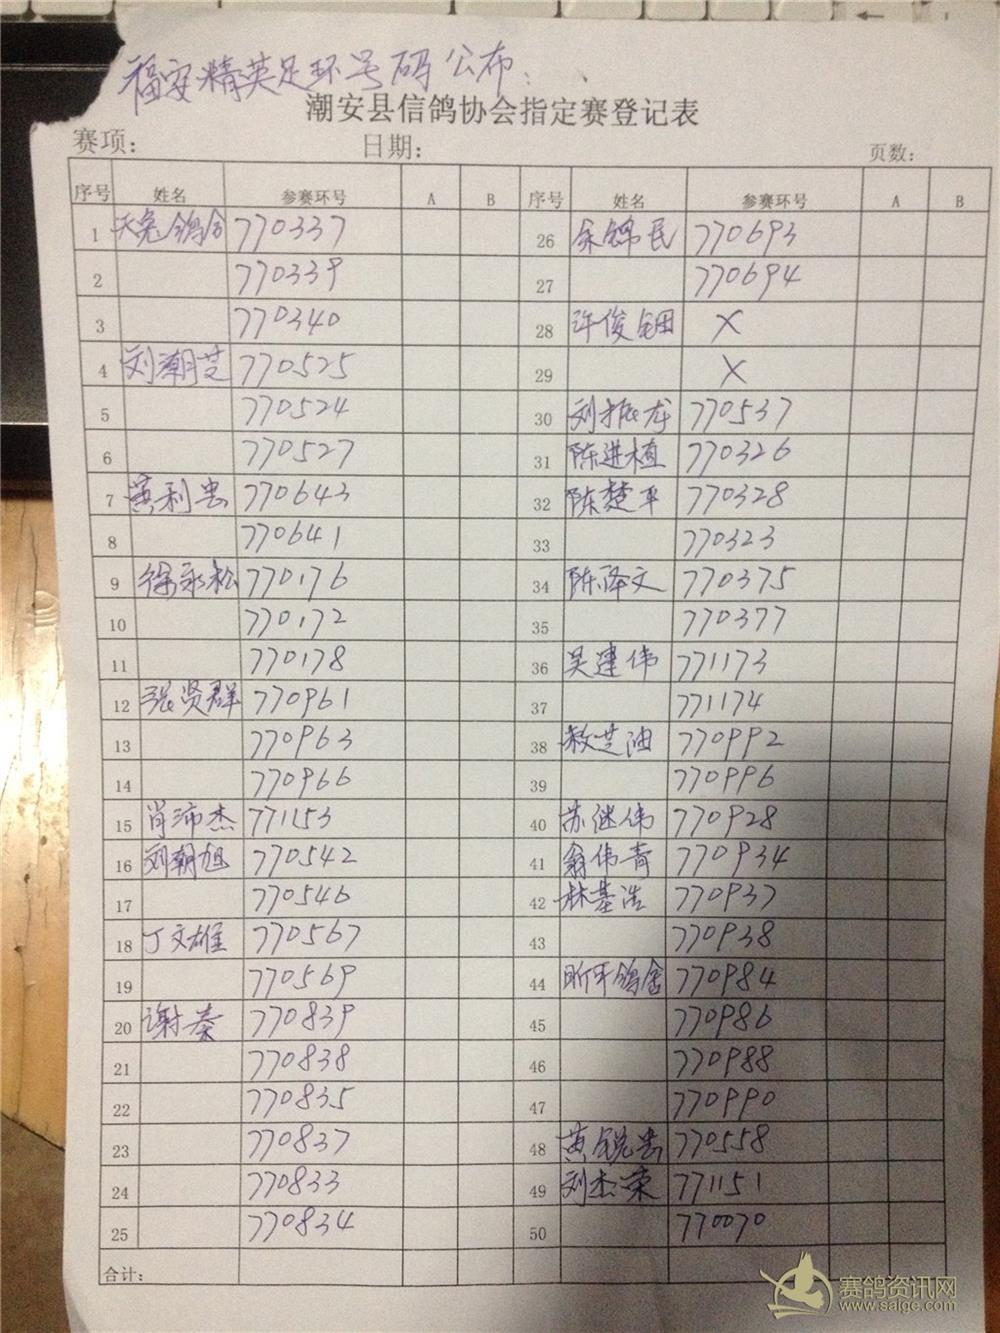 福安精英足环号码公布:
潮安县信鸽协会指定赛登记表
赛项: 日期: 页数:
序号 姓名 参赛环号 A B 序号 姓名 参赛环号 A B
1 天兔鸽舍 770337 26 余锦民 770693
2 770339 27 770694
3 770340 28 许俊钿 X
4 刘潮芝 770525 29 X
5 770524 30 刘振龙 770537
6 770527 31 陈进植 770326
7 黄利忠 770643 32 陈楚平 770328
8 770641 33 770323
9 徐永松 770176 34 陈泽文 770375
10 770172 35 770377
11 770178 36 吴建伟 771173
12 张贤群 770961 37 771174
13 770963 38 芝油 770992
14 770966 39 770996
15 肖沛杰 771153 40 苏继伟 770928
16 刘朝旭 770542 41 翁伟青 770934
17 770546 42 林基浩 770937
18 丁文雄 770567 43 770938
19 770569 44 昕平鸽舍 770984
20 谢秦 770839 45 770986
21 770838 46 770988
22 770835 47 770990
23 770837 48 黄锐忠 770558
24 770833 49 刘杰荣 771151
25 770834 50 770070
合计:
赛鸽资讯网
www.saige.com